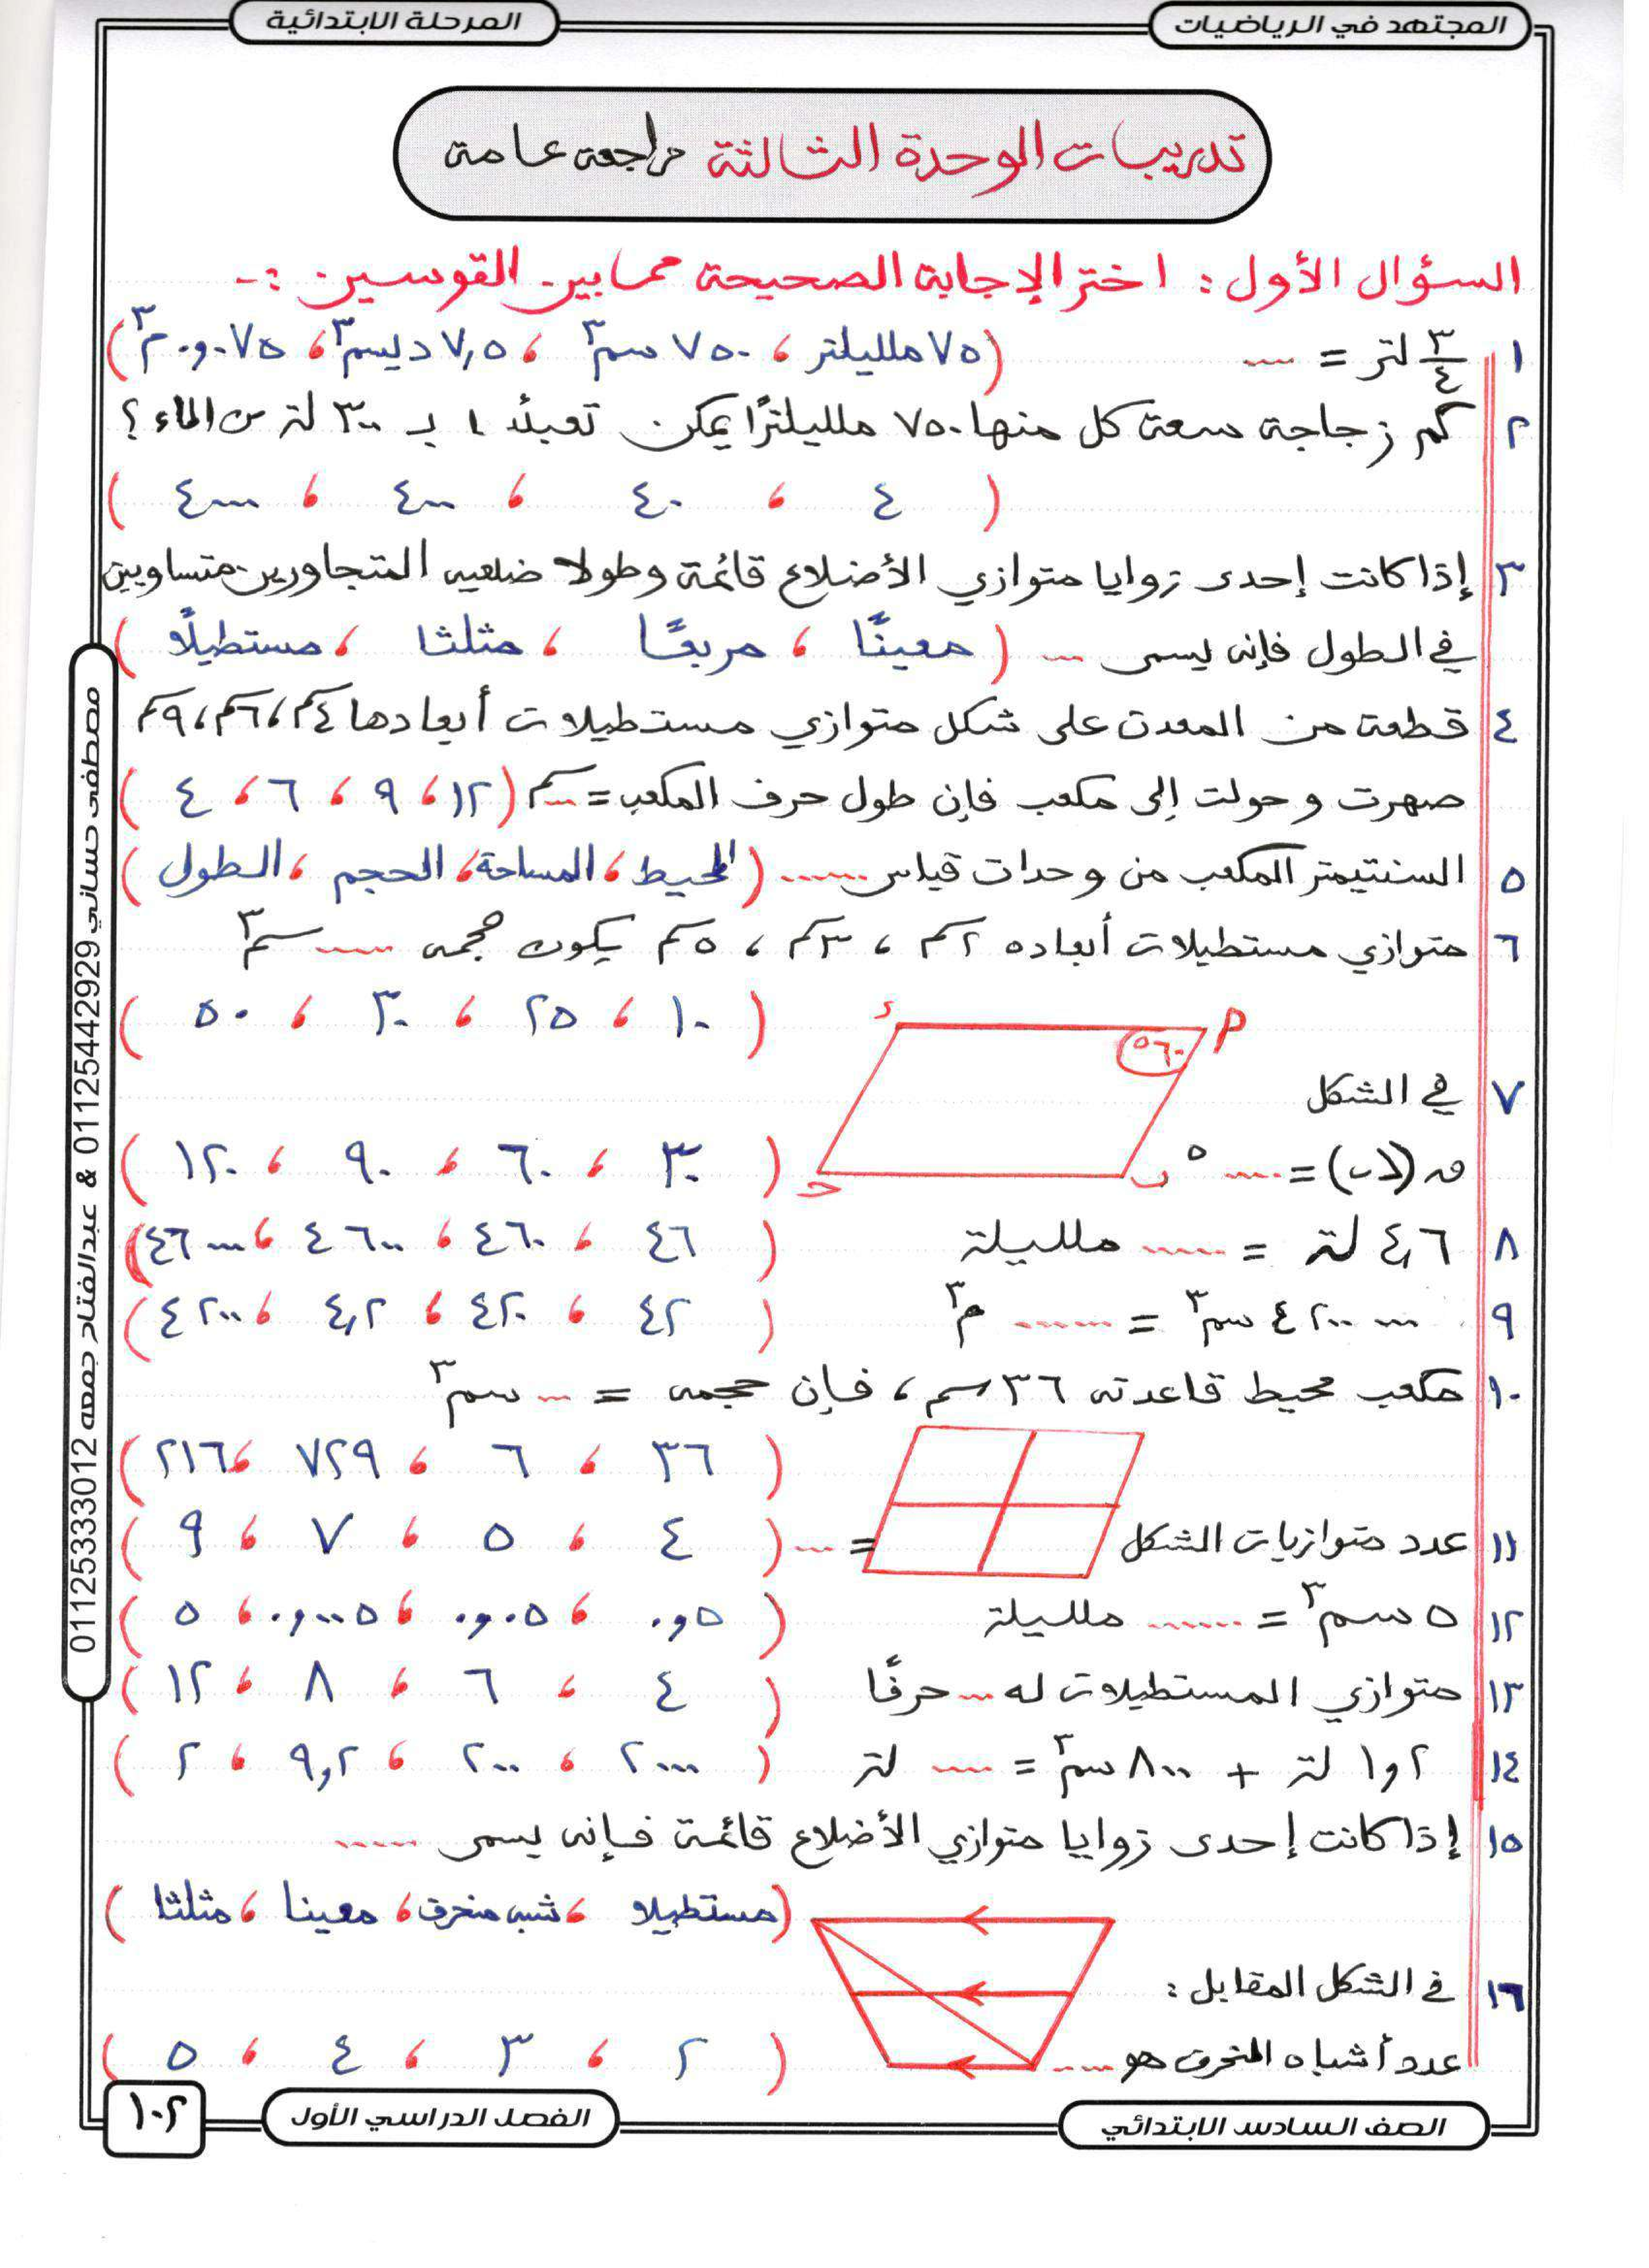 المجتهد في الرياضيات
المرحلة الابتدائية
تدريبات الوحدة الثالثة مراجعة عامة
السؤال الأول : اختر الإجابة الصحيحة مما بين القوسين :-
١ ٣/٤ لتر = .... (٧٥ ملليلتر ، ٧٥٠ سم٣ ، ٧,٥ ديسم٣ ، ٠,٠٧٥ م٣)
٢ كم زجاجة سعة كل منها ٧٥٠ ملليلترًا يمكن تعبئتها بـ ٣٠٠ لتر من الماء ؟
( ٤ ، ٤٠ ، ٤٠٠ ، ٤٠٠٠ )
٣ إذا كانت إحدى زوايا متوازي الأضلاع قائمة وطولا ضلعيه المتجاورين متساويين
في الطول فإنه يسمى .... ( معينًا ، مربعًا ، مثلثا ، مستطيلًا )
٤ قطعة من المعدن على شكل متوازي مستطيلات أبعادها ٤سم ، ٦سم ، ٩سم
صهرت وحولت إلى مكعب فإن طول حرف المكعب = .... سم (١٢ ، ٩ ، ٦ ، ٤ )
٥ السنتيمتر المكعب من وحدات قياس ...... (المحيط ، المساحة ، الحجم ، الطول )
٦ متوازي مستطيلات أبعاده ٢سم ، ٣سم ، ٥سم يكون حجمه ..... سم٣
( ١٠ ، ٢٥ ، ٣٠ ، ٥٠ )
٧ في الشكل
ء
٦٠°
أ
ب
ج
ق(∠ب) = .....° ( ٣٠ ، ٦٠ ، ٩٠ ، ١٢٠ )
٨ ٤,٦ لتر = ...... ملليلتر ( ٤٦ ، ٤٦٠ ، ٤٦٠٠ ، ٤٦٠٠٠)
٩ ٤٢٠٠٠٠٠ سم٣ = ...... م٣ ( ٤٢ ، ٤٢٠ ، ٤,٢ ، ٤٢٠٠ )
١٠ مكعب محيط قاعدته ٣٦ سم ، فإن حجمه = .... سم٣
( ٣٦ ، ٦ ، ٧٢٩ ، ٢١٦ )
١١ عدد متوازيات الشكل = .... ( ٤ ، ٥ ، ٧ ، ٩ )
١٢ ٥ سم٣ = ....... ملليلتر ( ٠,٥ ، ٠,٠٥ ، ٠,٠٠٥ ، ٥ )
١٣ متوازي المستطيلات له .... حرفًا ( ٤ ، ٦ ، ٨ ، ١٢ )
١٤ ١,٢ لتر + ٨٠٠ سم٣ = ..... لتر ( ٢٠٠٠ ، ٢٠٠ ، ٩,٢ ، ٢ )
١٥ إذا كانت إحدى زوايا متوازي الأضلاع قائمة فإنه يسمى .....
(مستطيلا ، شبه منحرف ، معينا ، مثلثا )
١٦ في الشكل المقابل :
عدد أشباه المنحرف هو .... ( ٢ ، ٣ ، ٤ ، ٥ )
مصطفى حساني 01125442929 & عبدالفتاح جمعه 01125333012
الصف السادس الابتدائي
الفصل الدراسي الأول
١٠٢